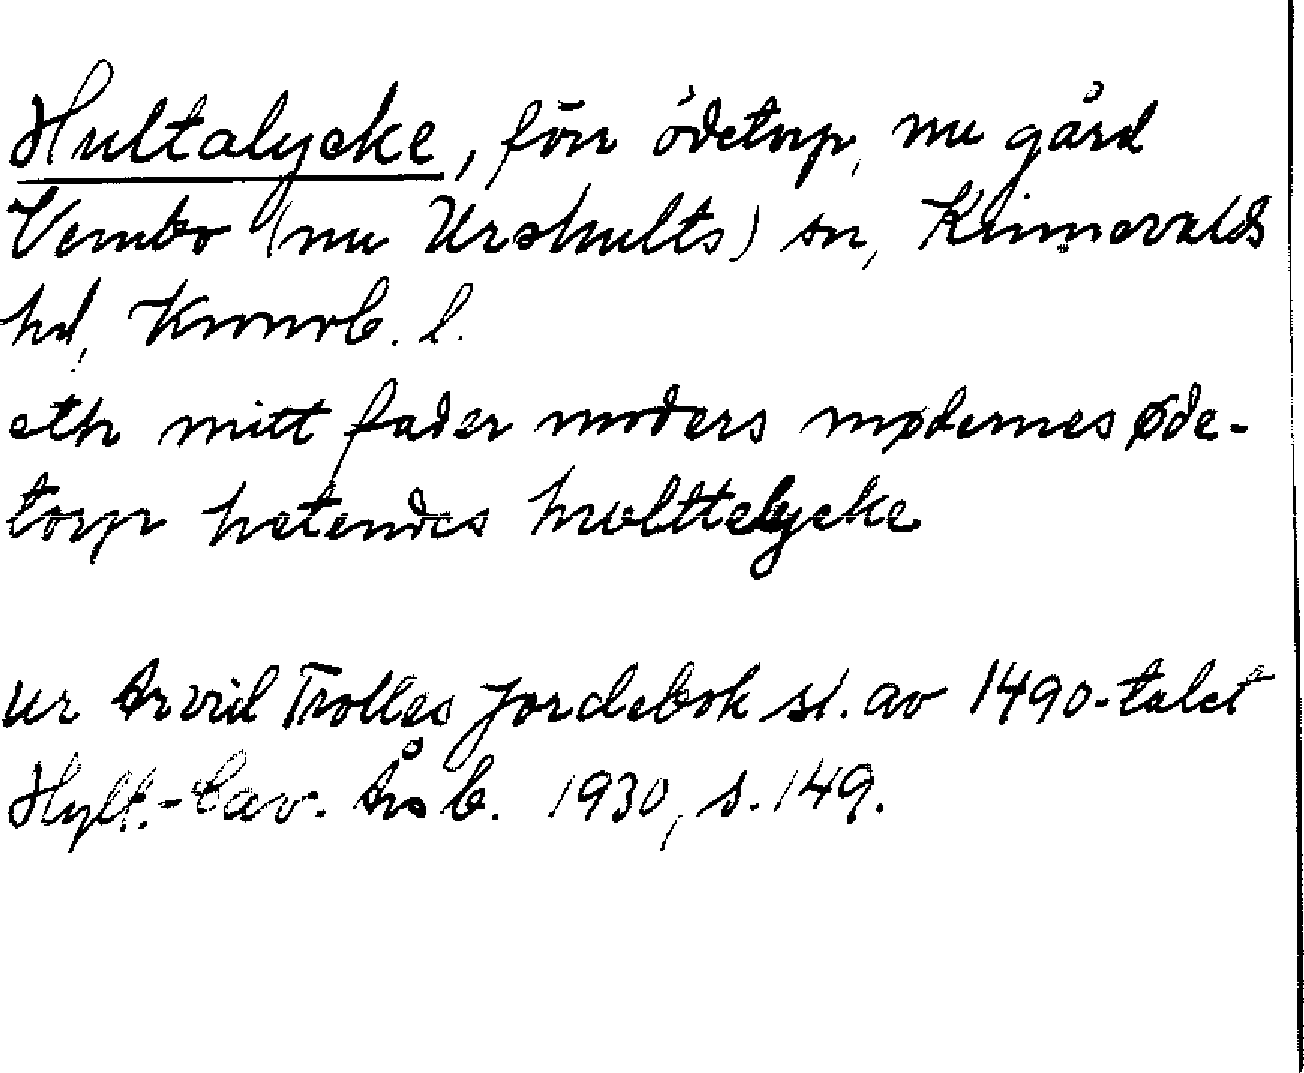 Hultalycke, förr ödetorp, nu gård
Vembo (nu Urshults) sn, Kinnevalds
hd, Kronob. l.
eth mitt fader moders mødernes øde-
torp hetendes hwlttelycke
ur Arvid Trolles Jordebok sl. av 1490-talet
Hylt.-Cav. Årsb. 1930, s. 149.